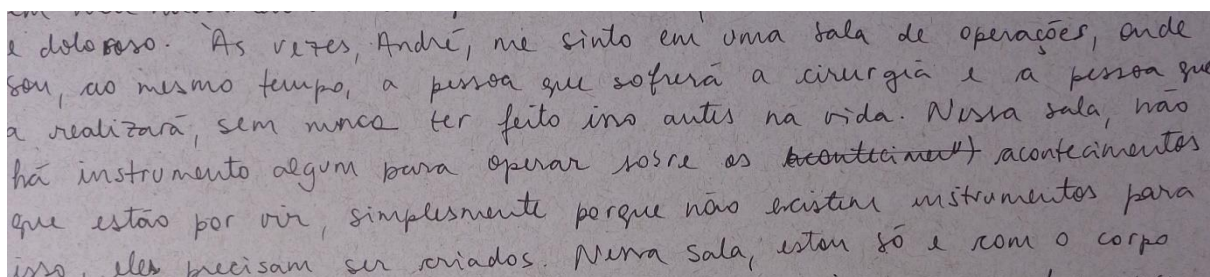 e doloroso. Às vezes, André, me sinto em uma sala de operações, onde
sou, ao mesmo tempo, a pessoa que sofrerá a cirurgia e a pessoa que
a realizará, sem nunca ter feito isso antes na vida. Nessa sala, não
há instrumento algum para operar sobre os acontecimentos
que estão por vir, simplesmente porque não existem instrumentos para
isso, eles precisam ser criados. Nessa sala, estou só e com o corpo